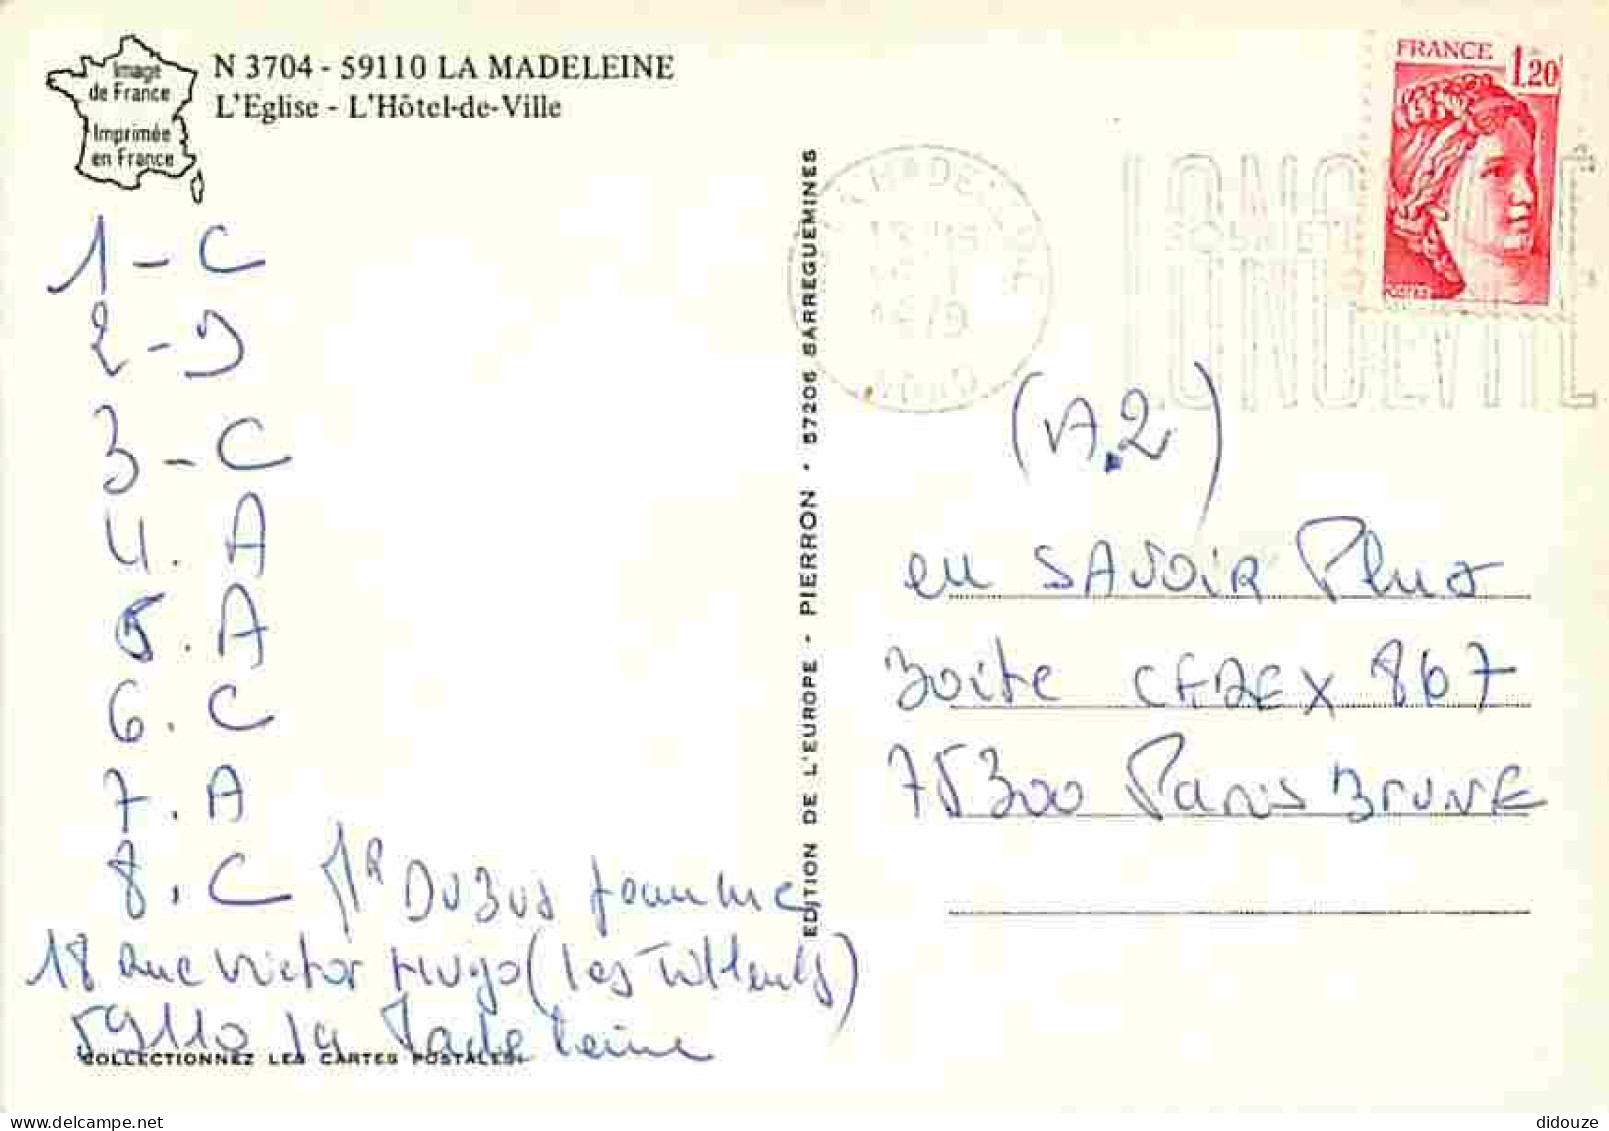 Image
de France
Imprimée
en France
N 3704 - 59110 LA MADELEINE
L'Eglise - L'Hôtel-de-Ville
1 - C
2 - D
3 - C
4. A
5. A
6. C
7. A
8. C
Mr DUBUS
18 Rue Victor Hugo (les Tilleuls)
59110 la Madeleine
COLLECTIONNEZ LES CARTES POSTALES
EDITION DE L'EUROPE - PIERRON • 57206 SARREGUEMINES
FRANCE
1,20
POSTES
LA MADELEINE
NORD
LONGEVILLE
(A.2)
en SAVOIR Plus
Boite CEDEX 867
75300 Paris BRUNE
didouze